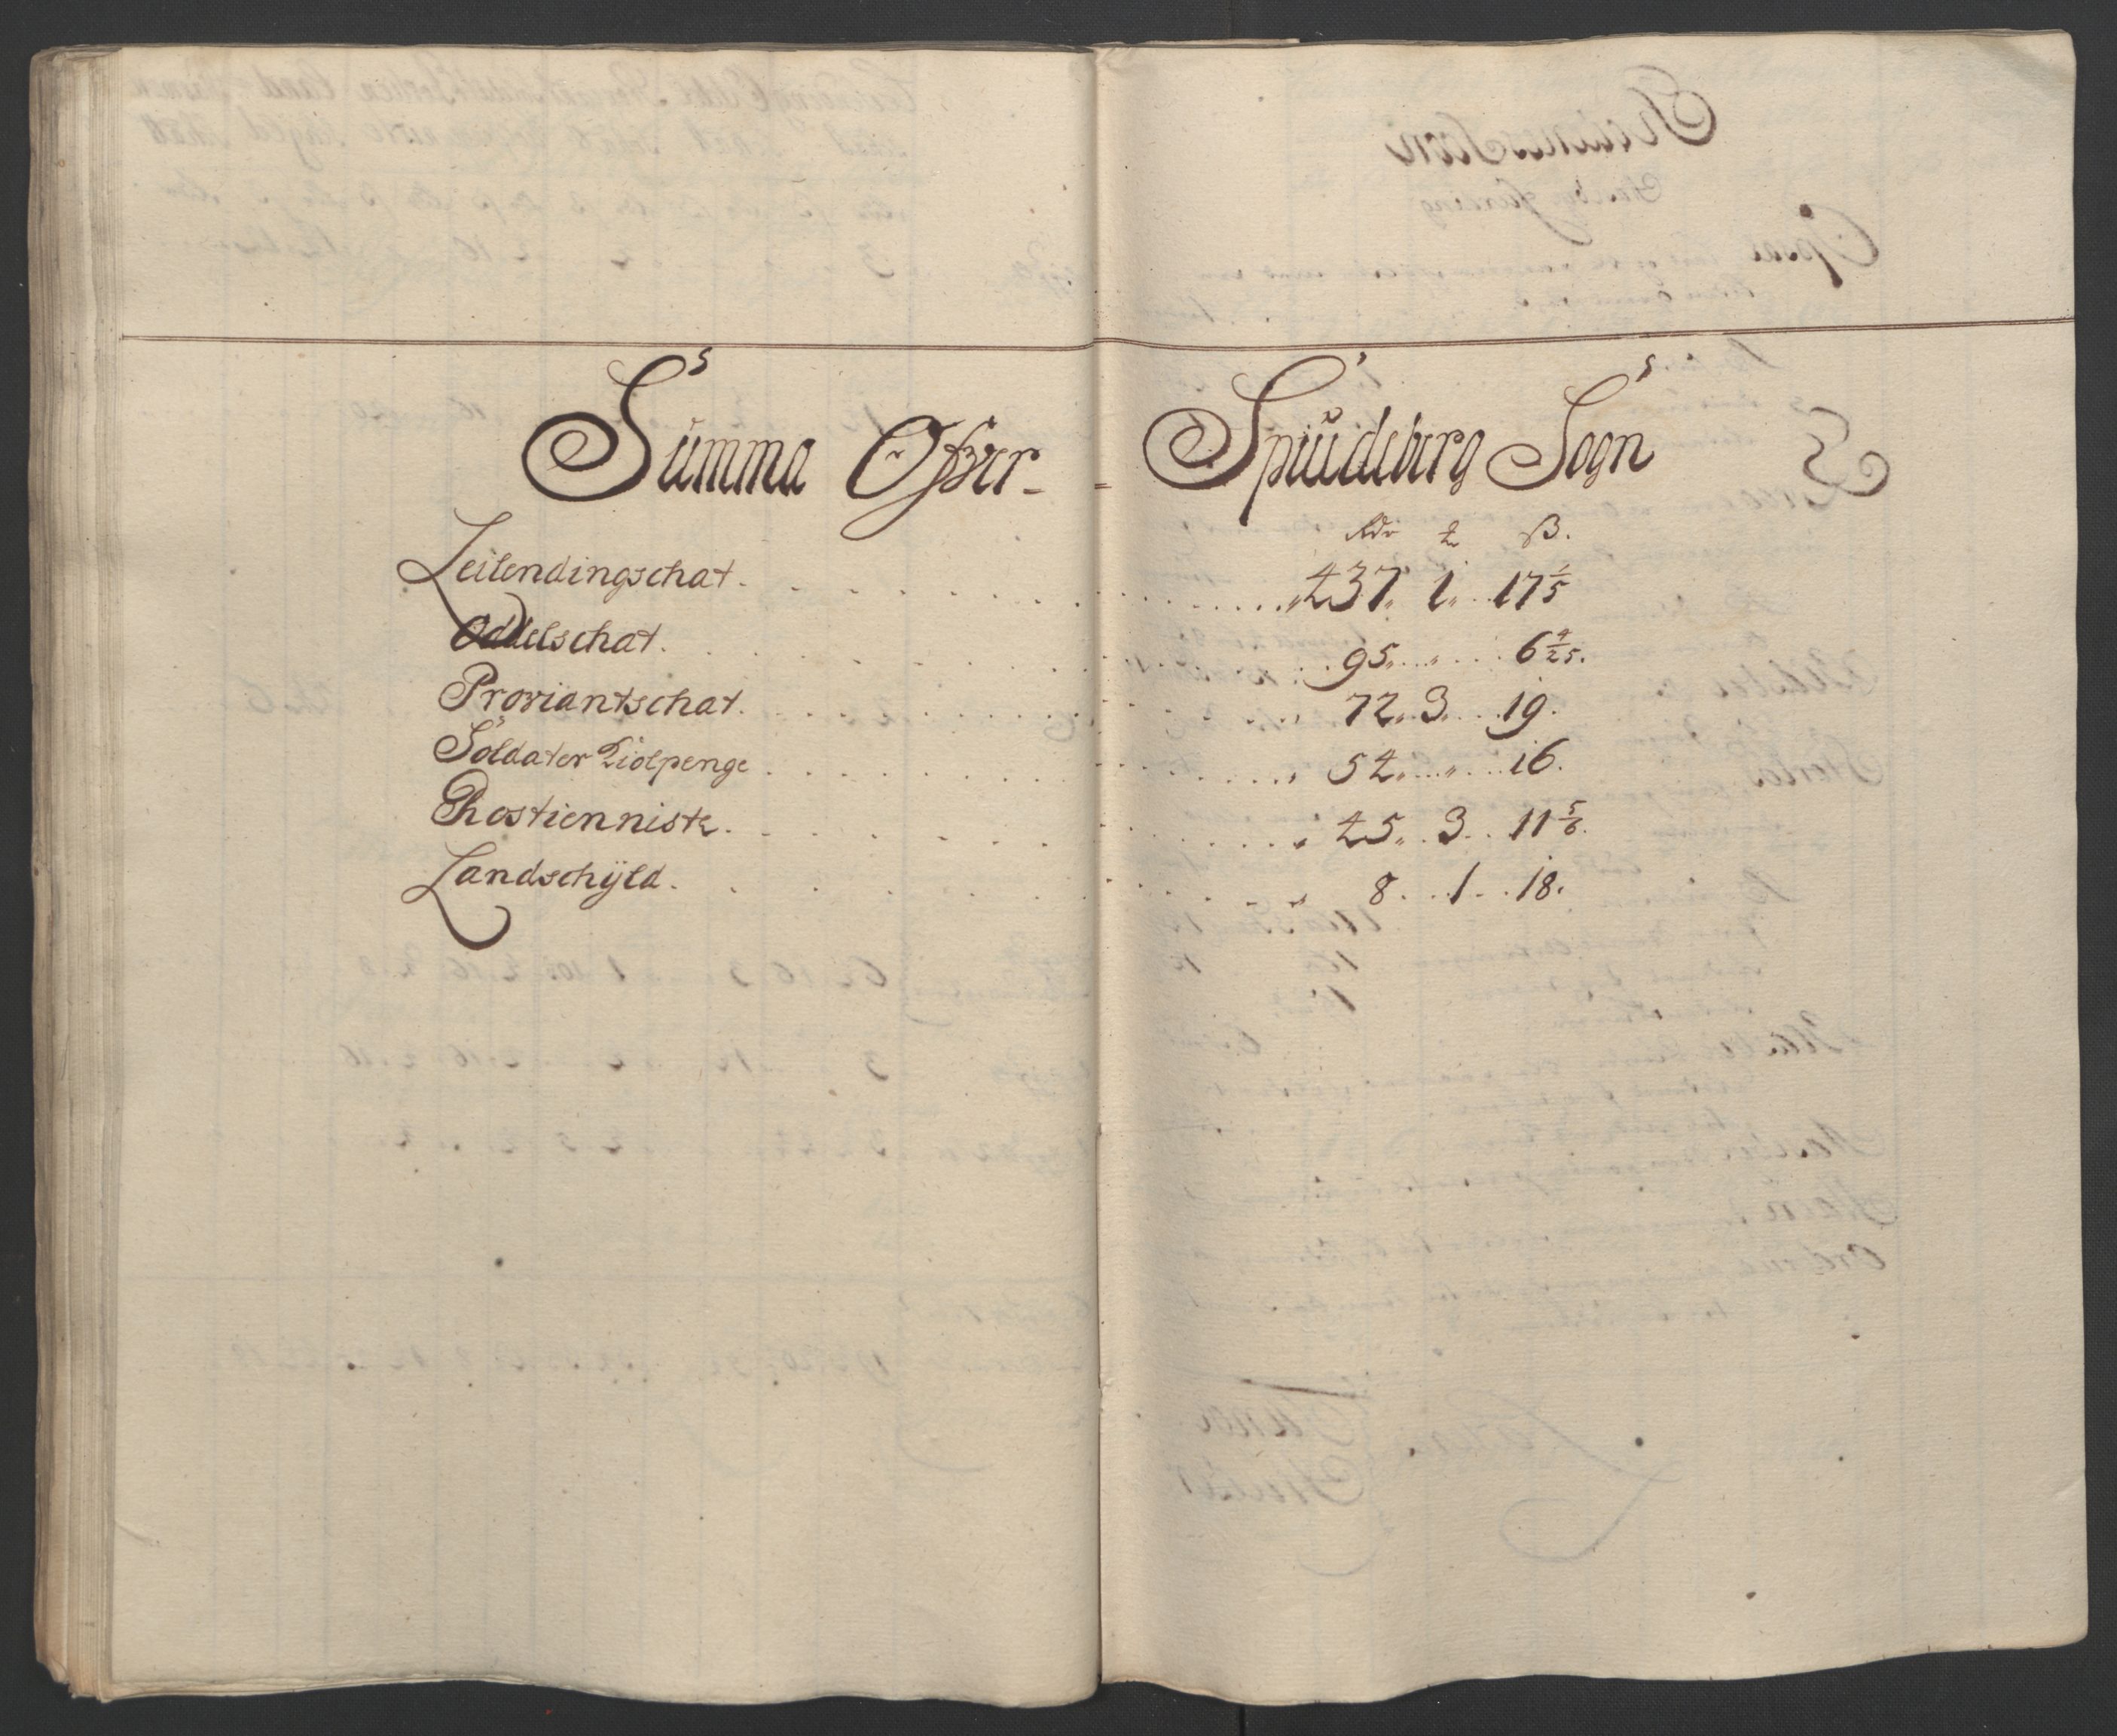 Summa Ofver - = Spudeberg Sogn
Rdr ß.
Leilendingschat. 437. 1. 17 1/5
Oddelschat. 95. " 6 4/25.
Proviantschat. 72. 3. 19.
Soldater Kiolpenge. 54. " 16.
Rostienniste. 45. 3. 11 5/6.
Landschÿld. 8. 1. 18.